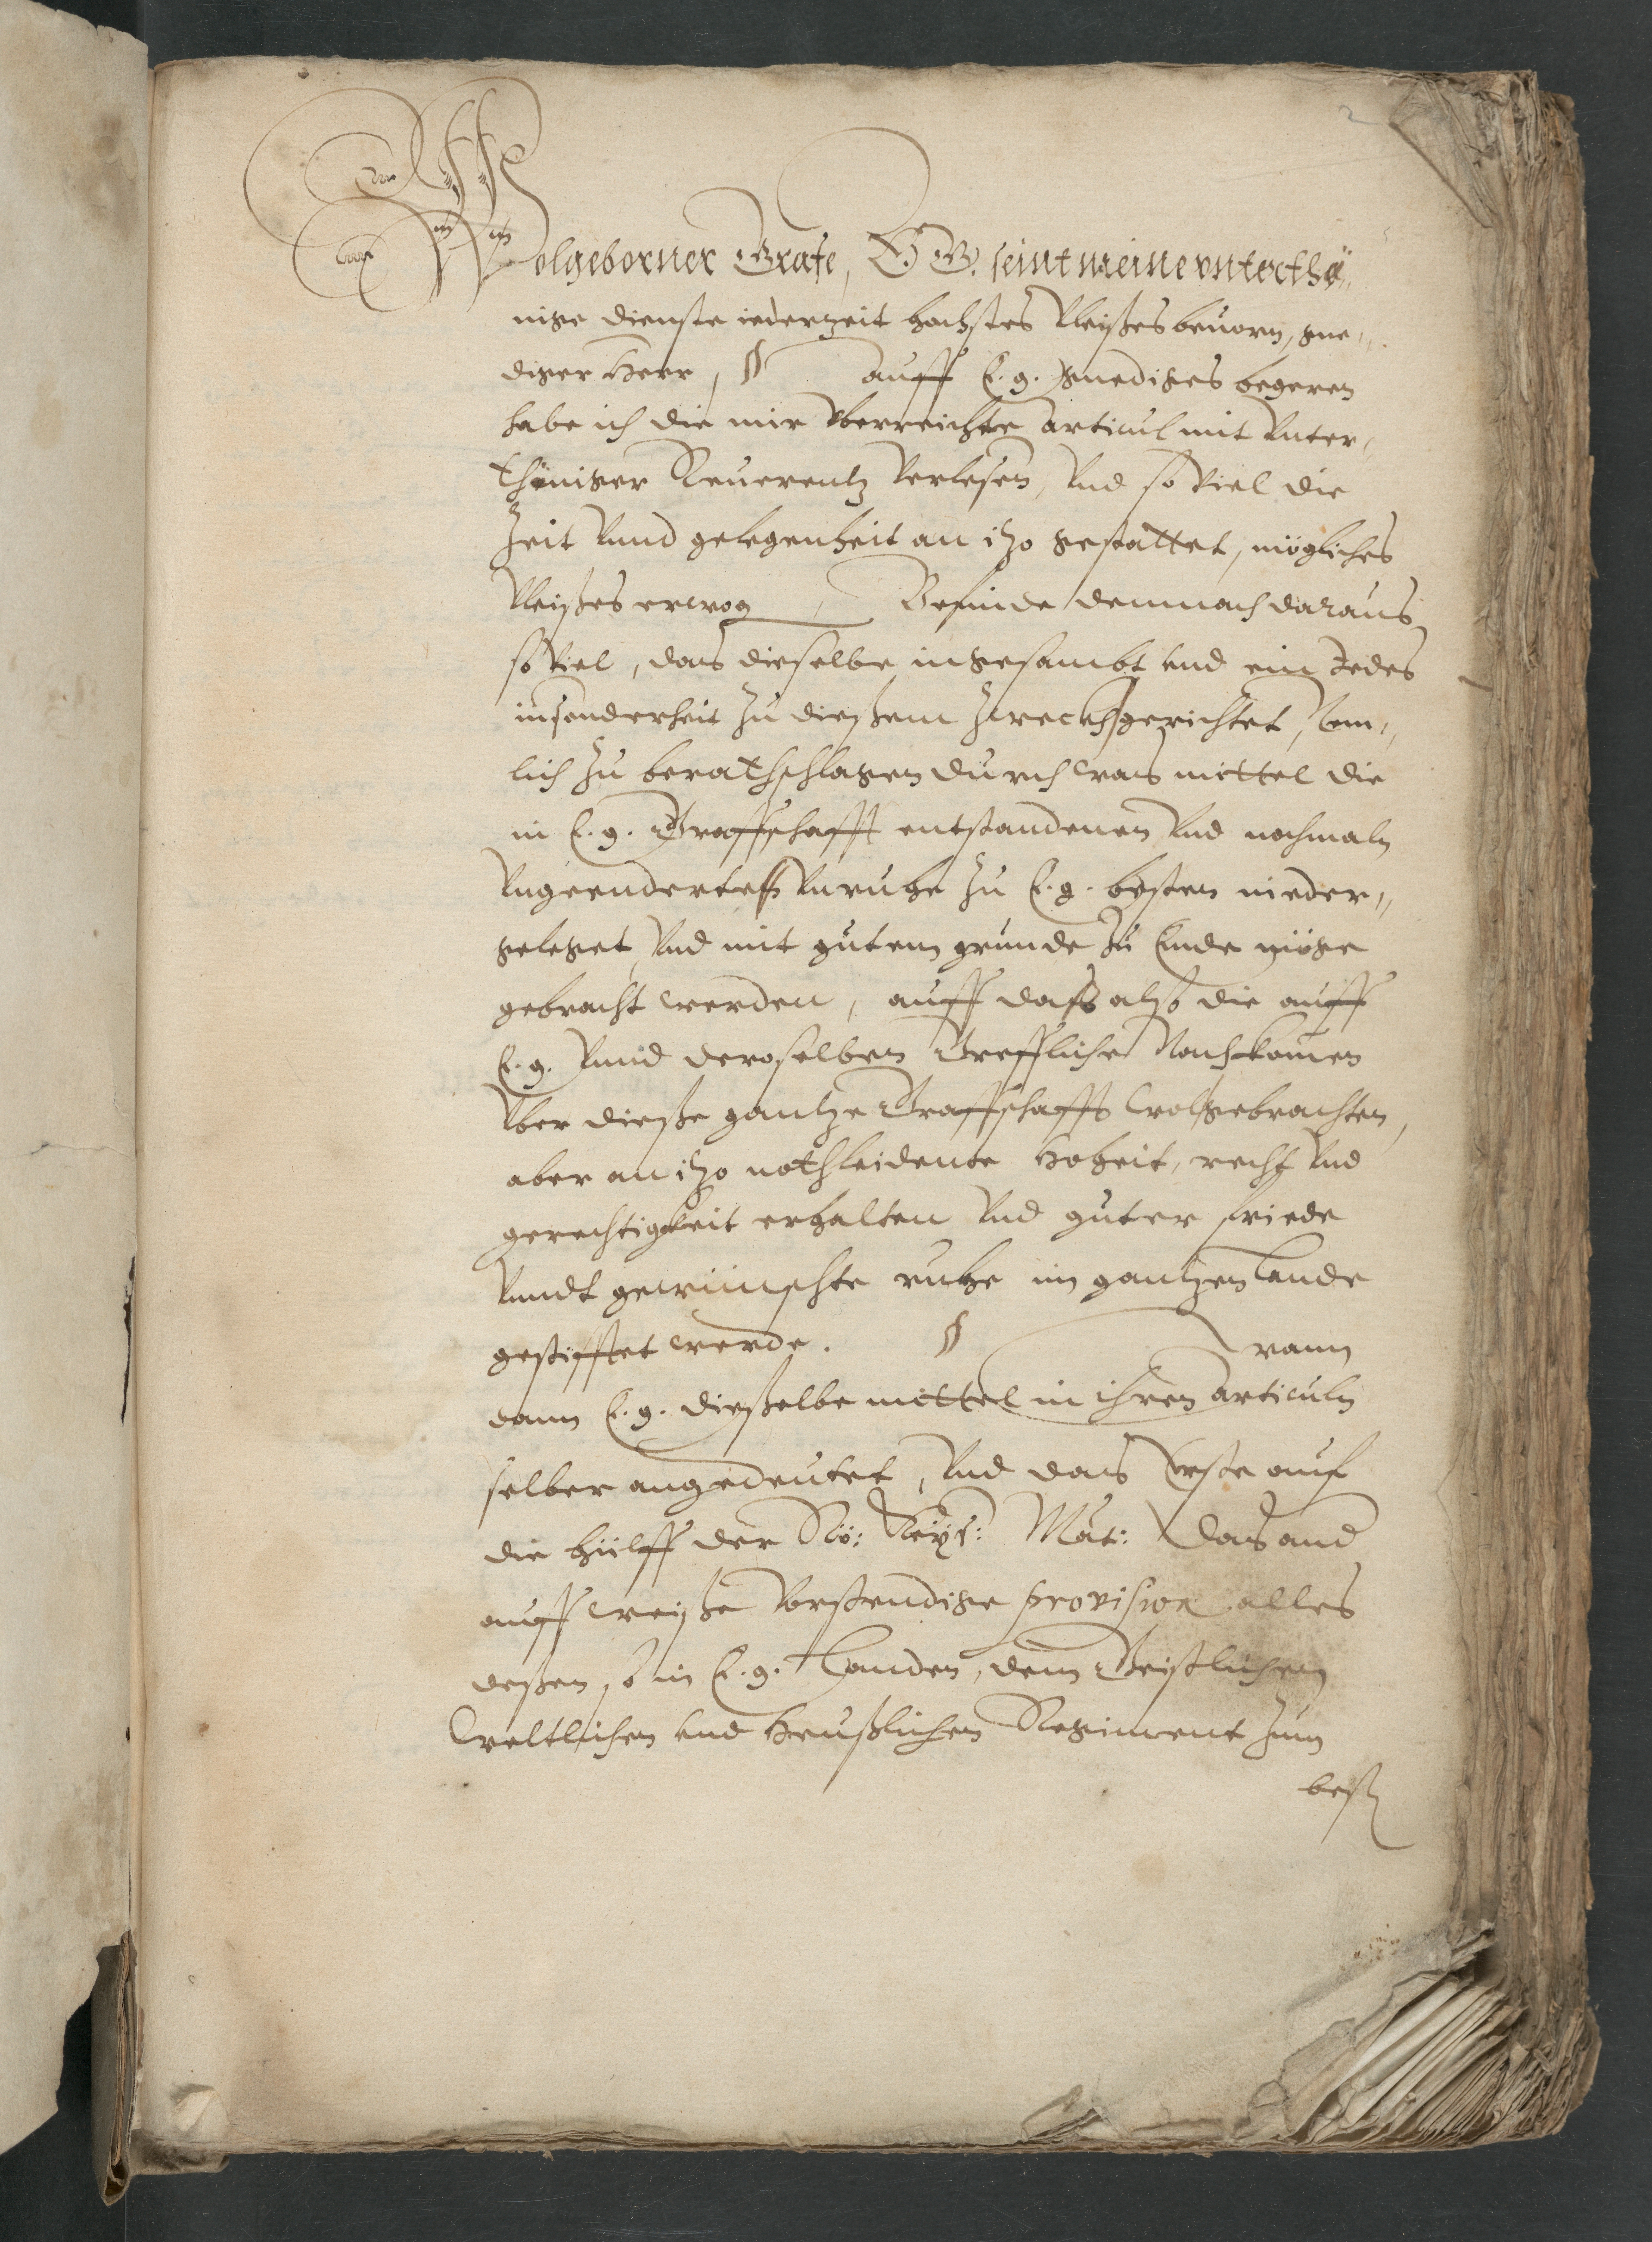 2
Wolgeborner Grafe, E. G. seint meine vnterthä„
nige dienste iederzeit hochstes Vleißes beuorn, gne„
diger Herr, § auff E. g. gnediges begeren
habe ich die mir vberreichte articul mit vnter„
thäniger Reuerentz verlesen, vnd so viel die
Zeit vnnd gelegenheit an itzo gestattet, mögliches
Vleißes erwog, Befinde demnach daraus
so viel, das dieselbe ingesambt vnd ein Jedes
insonderheit zu dießem zweck gerichtet, Nem„
lich zu berathschlagen durch was mittel die
in E. g. Graffschafft entstandenen vnd nochmaln
vngeenderte vnruhe zu E. g. besten nieder„
geleget, vnd mit gutem grunde zu Ende möge
gebracht werden, auff dass also die auff
E. g. vnnd deroselben Greffliche Nachkomen
vber dieße gantze Graffschafft wolgebrachten,
aber an itzo nothleidente Hoheit, recht vnd
gerechtigkeit erhalten vnd guter friede
vnndt gewünschte ruhe im gantzen Lande
gestifftet werde. § Wann
dann E. g. dieselbe mittel in ihren articuln
selber angedeutet, vnd das Erste auf
die hülff der Rö: Keys: Mat: das and
auff weise verstendige provision alles
deßen, so in E. g. Landen, dem Geistlichen
Weltlichen vnd Heußlichen Regiment zum
best